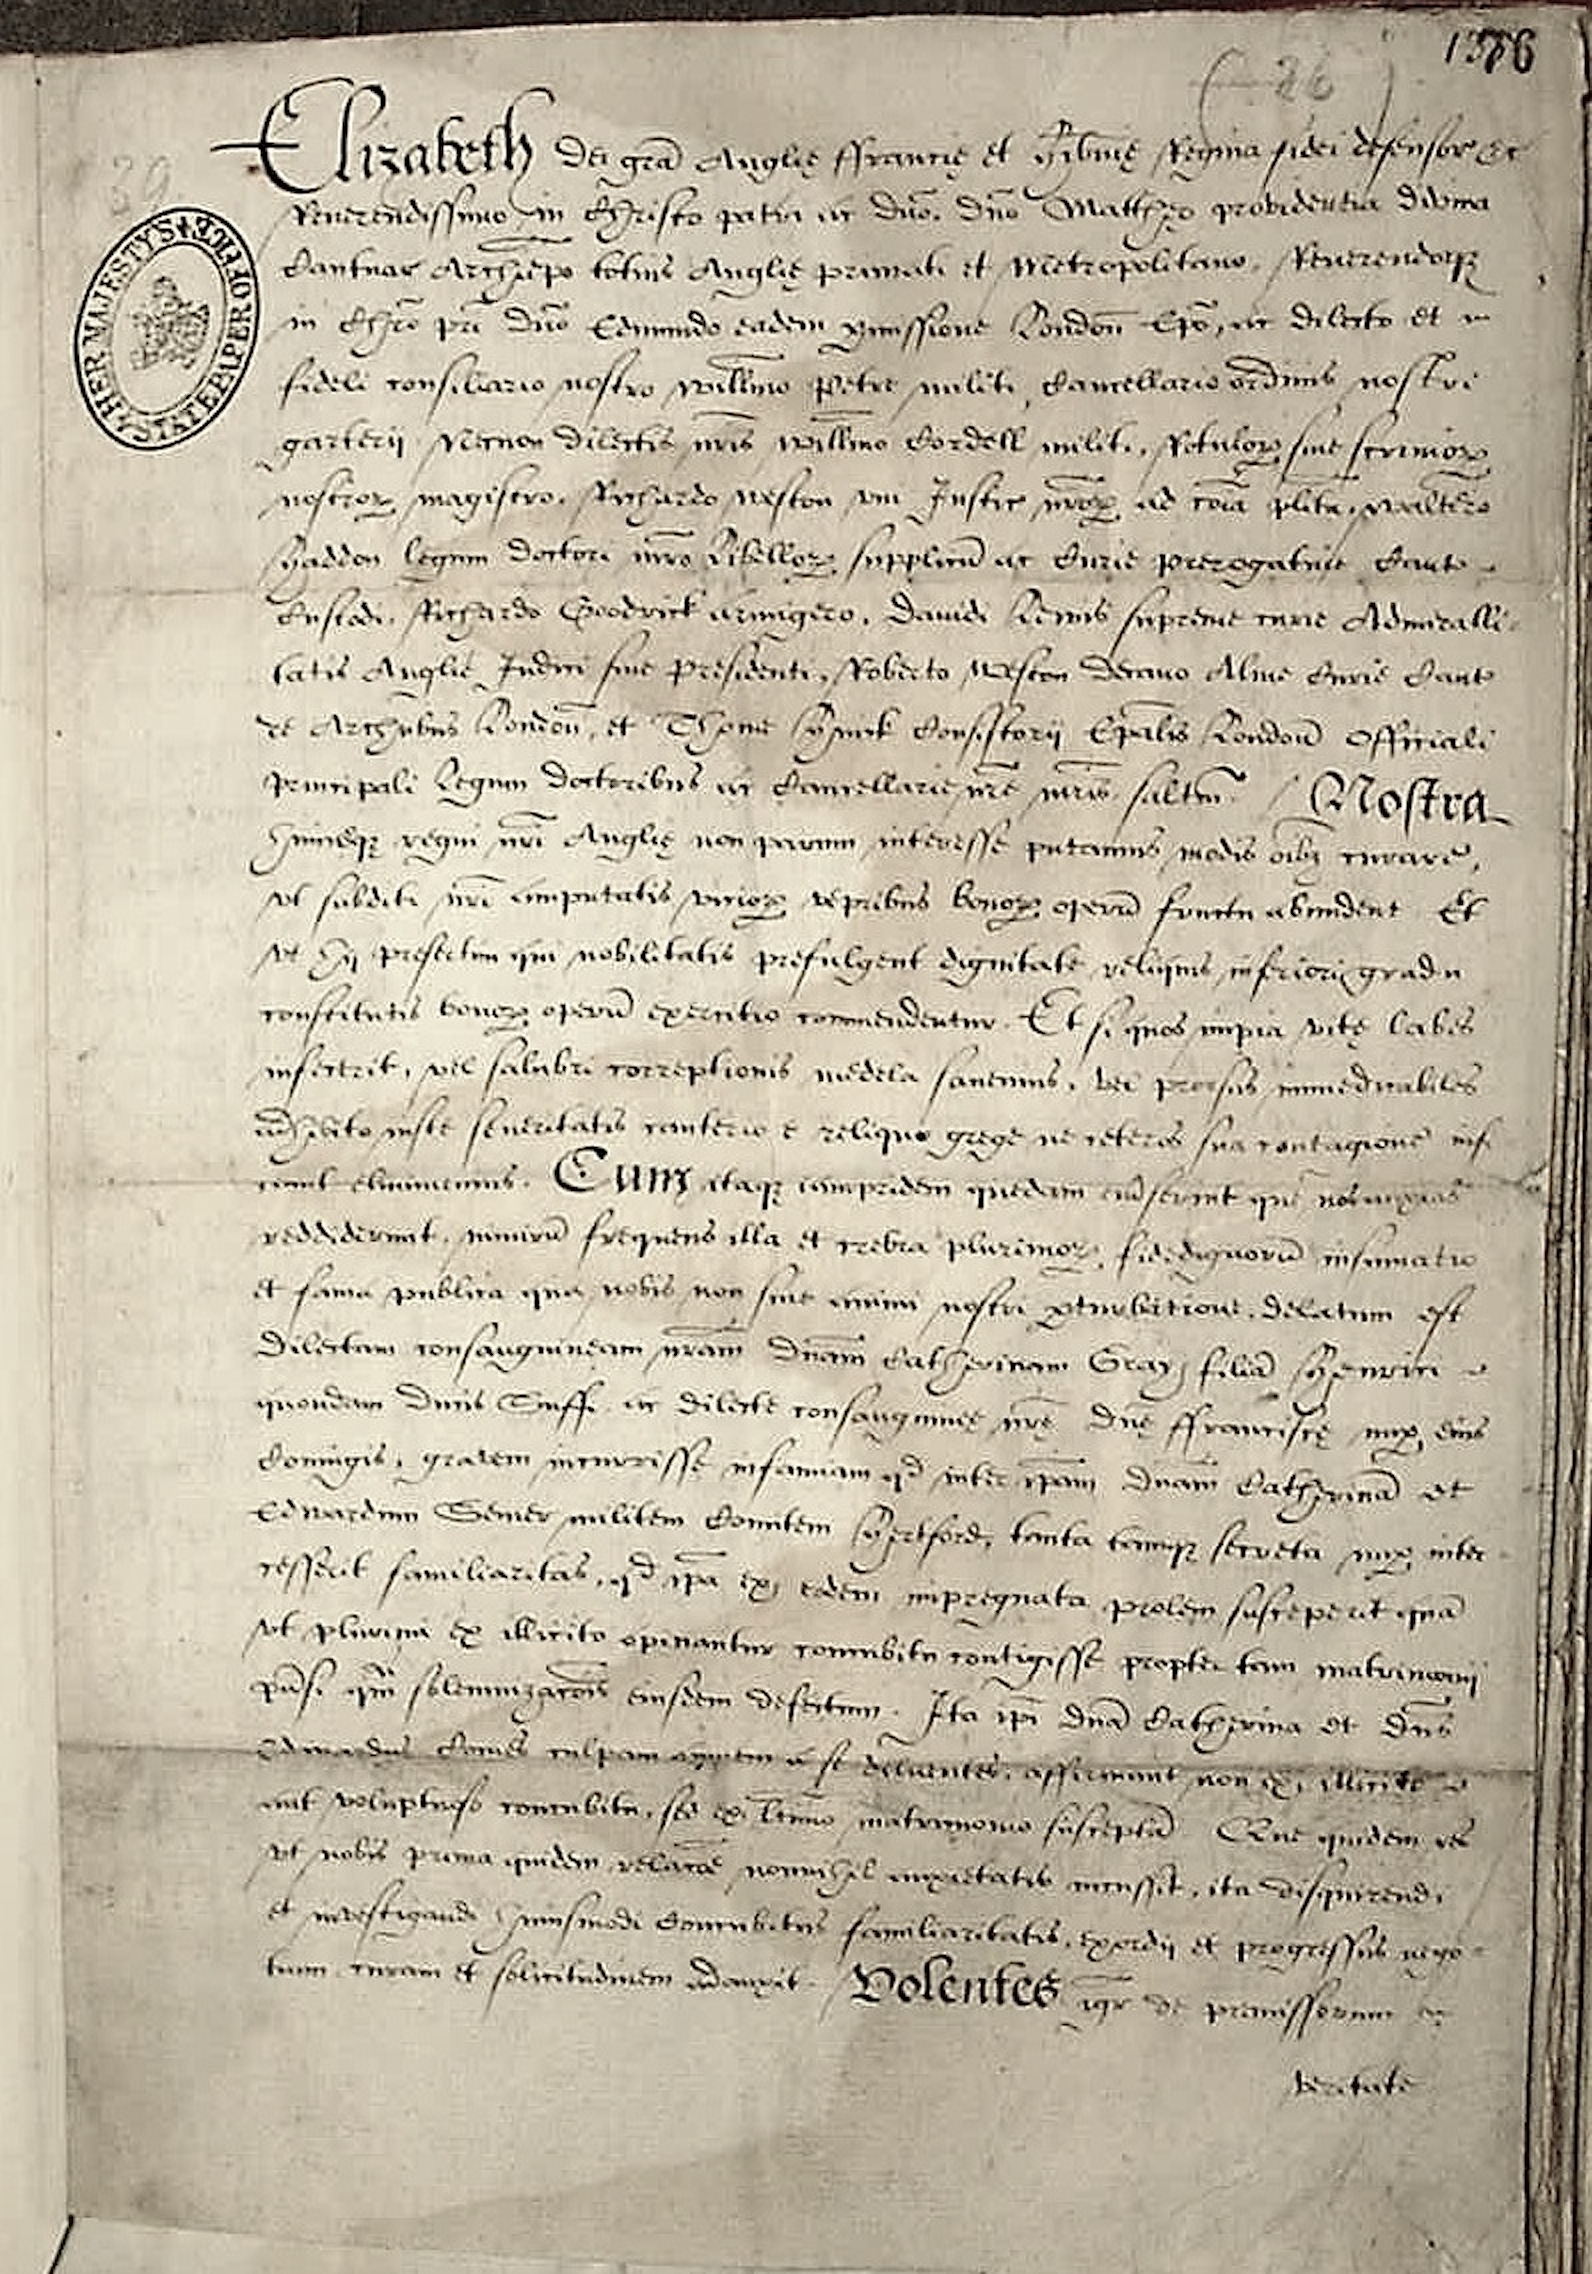 1376
( 26 )
39
HER MAJESTY'S STATE PAPER OFFICE
Elizabeth Dei grã Anglię ffrancię et hibnię Regina fidei defensor &c
Reverendissimo in Christo patri ac dño, dño Matthęo providentia divina
Cantuar Archiepo totius Anglię primati et Metropolitano, Reverendoqȝ
in Chro pri dño Edmundo eadem pmissione London Epõ, ac dilecto et
fideli consiliario nostro Willmo Petre militi, Cancellario ordinis nostri
garterij Necnon dilectis nris Willmo Cordell militi, Rotulorꝝ sive scriniorꝝ
nostrorꝝ magistro, Richardo Weston uni Justic nrorꝝ ad coia plita, Waltero
Haddon legum doctori nrõ libellorꝝ supplicũ ac Curie prerogative Cant
Custodi, Richardo Goodrick armigero, Davidi Lewis supreme curie Admiralli
tatis Anglię Judici sive presidenti, Roberto Weston decano Alme Curie Cant
de Archubus London, et Thome Huick Consistorij Epalis London Officiali
principali Legum doctoribus ac Cancellarie nrẽ mris saltm. Nostra
huiusqȝ regni nri Anglię non parum interesse putamus modis oibȝ curare,
ut subditi nri amputatis vitiorꝝ vepribus bonorꝝ operũ fructu abundent Et
ut hij presertim qui nobilitatis prefulgent dignitate reliquis inferiori gradu
constitutis bonorꝝ operũ exercitio commendentur. Et si quos impia vitę labes
infecerit, vel salubri correptionis medela sanemus, vel prorsus immedicabiles
adhibito iuste severitatis cauterio e reliquo grege ne ceteros sua contagione inf
iciant eliminemus. Cum itaqȝ iampridem quedam evẽserint que nos anxias
reddiderunt, nimirũ frequens illa et crebra plurimorꝝ fidedignorũ insinuatio
et fama publica qua nobis non sine animi nostri pturbatione, delatum est
dilectam consanguineam nram dnam Catherinam Gray filiã Henrici
quondam ducis Suff. ac dilectę consanguineę nrę dnę ffranciscę nup eius
Coniugis, gravem incurrisse infamiam qd inter ipam dnam Catherinã et
Edwardum Semer militem Comitem Hertford, tanta tamqȝ secreta nup inter
cesserit familiaritas, qd ipa ex eodem impregnata prolem susceperit quã
ut plurimi ex illicito opinantur concubitu contigisse propter tam matrimonij
pñsi qm solemnizacõis eiusdem defectum. Ita ipi dnã Catherina et dñs
Edwardus Comes culpam omnem a se deluentes, affirmant non ex illicito
aut voluptuoso concubitu, sed ex ltimo matrimonio susceptã Que quidem res
ut nobis prima quidem relacõe nonnihil anxietatis incussit, ita disquirendi
et investigandi huiusmodi concubitus familiaritatis, exordij et progressus nego
tium curam et solicitudinem adauxit. Volentes igr de premissorum
veritate